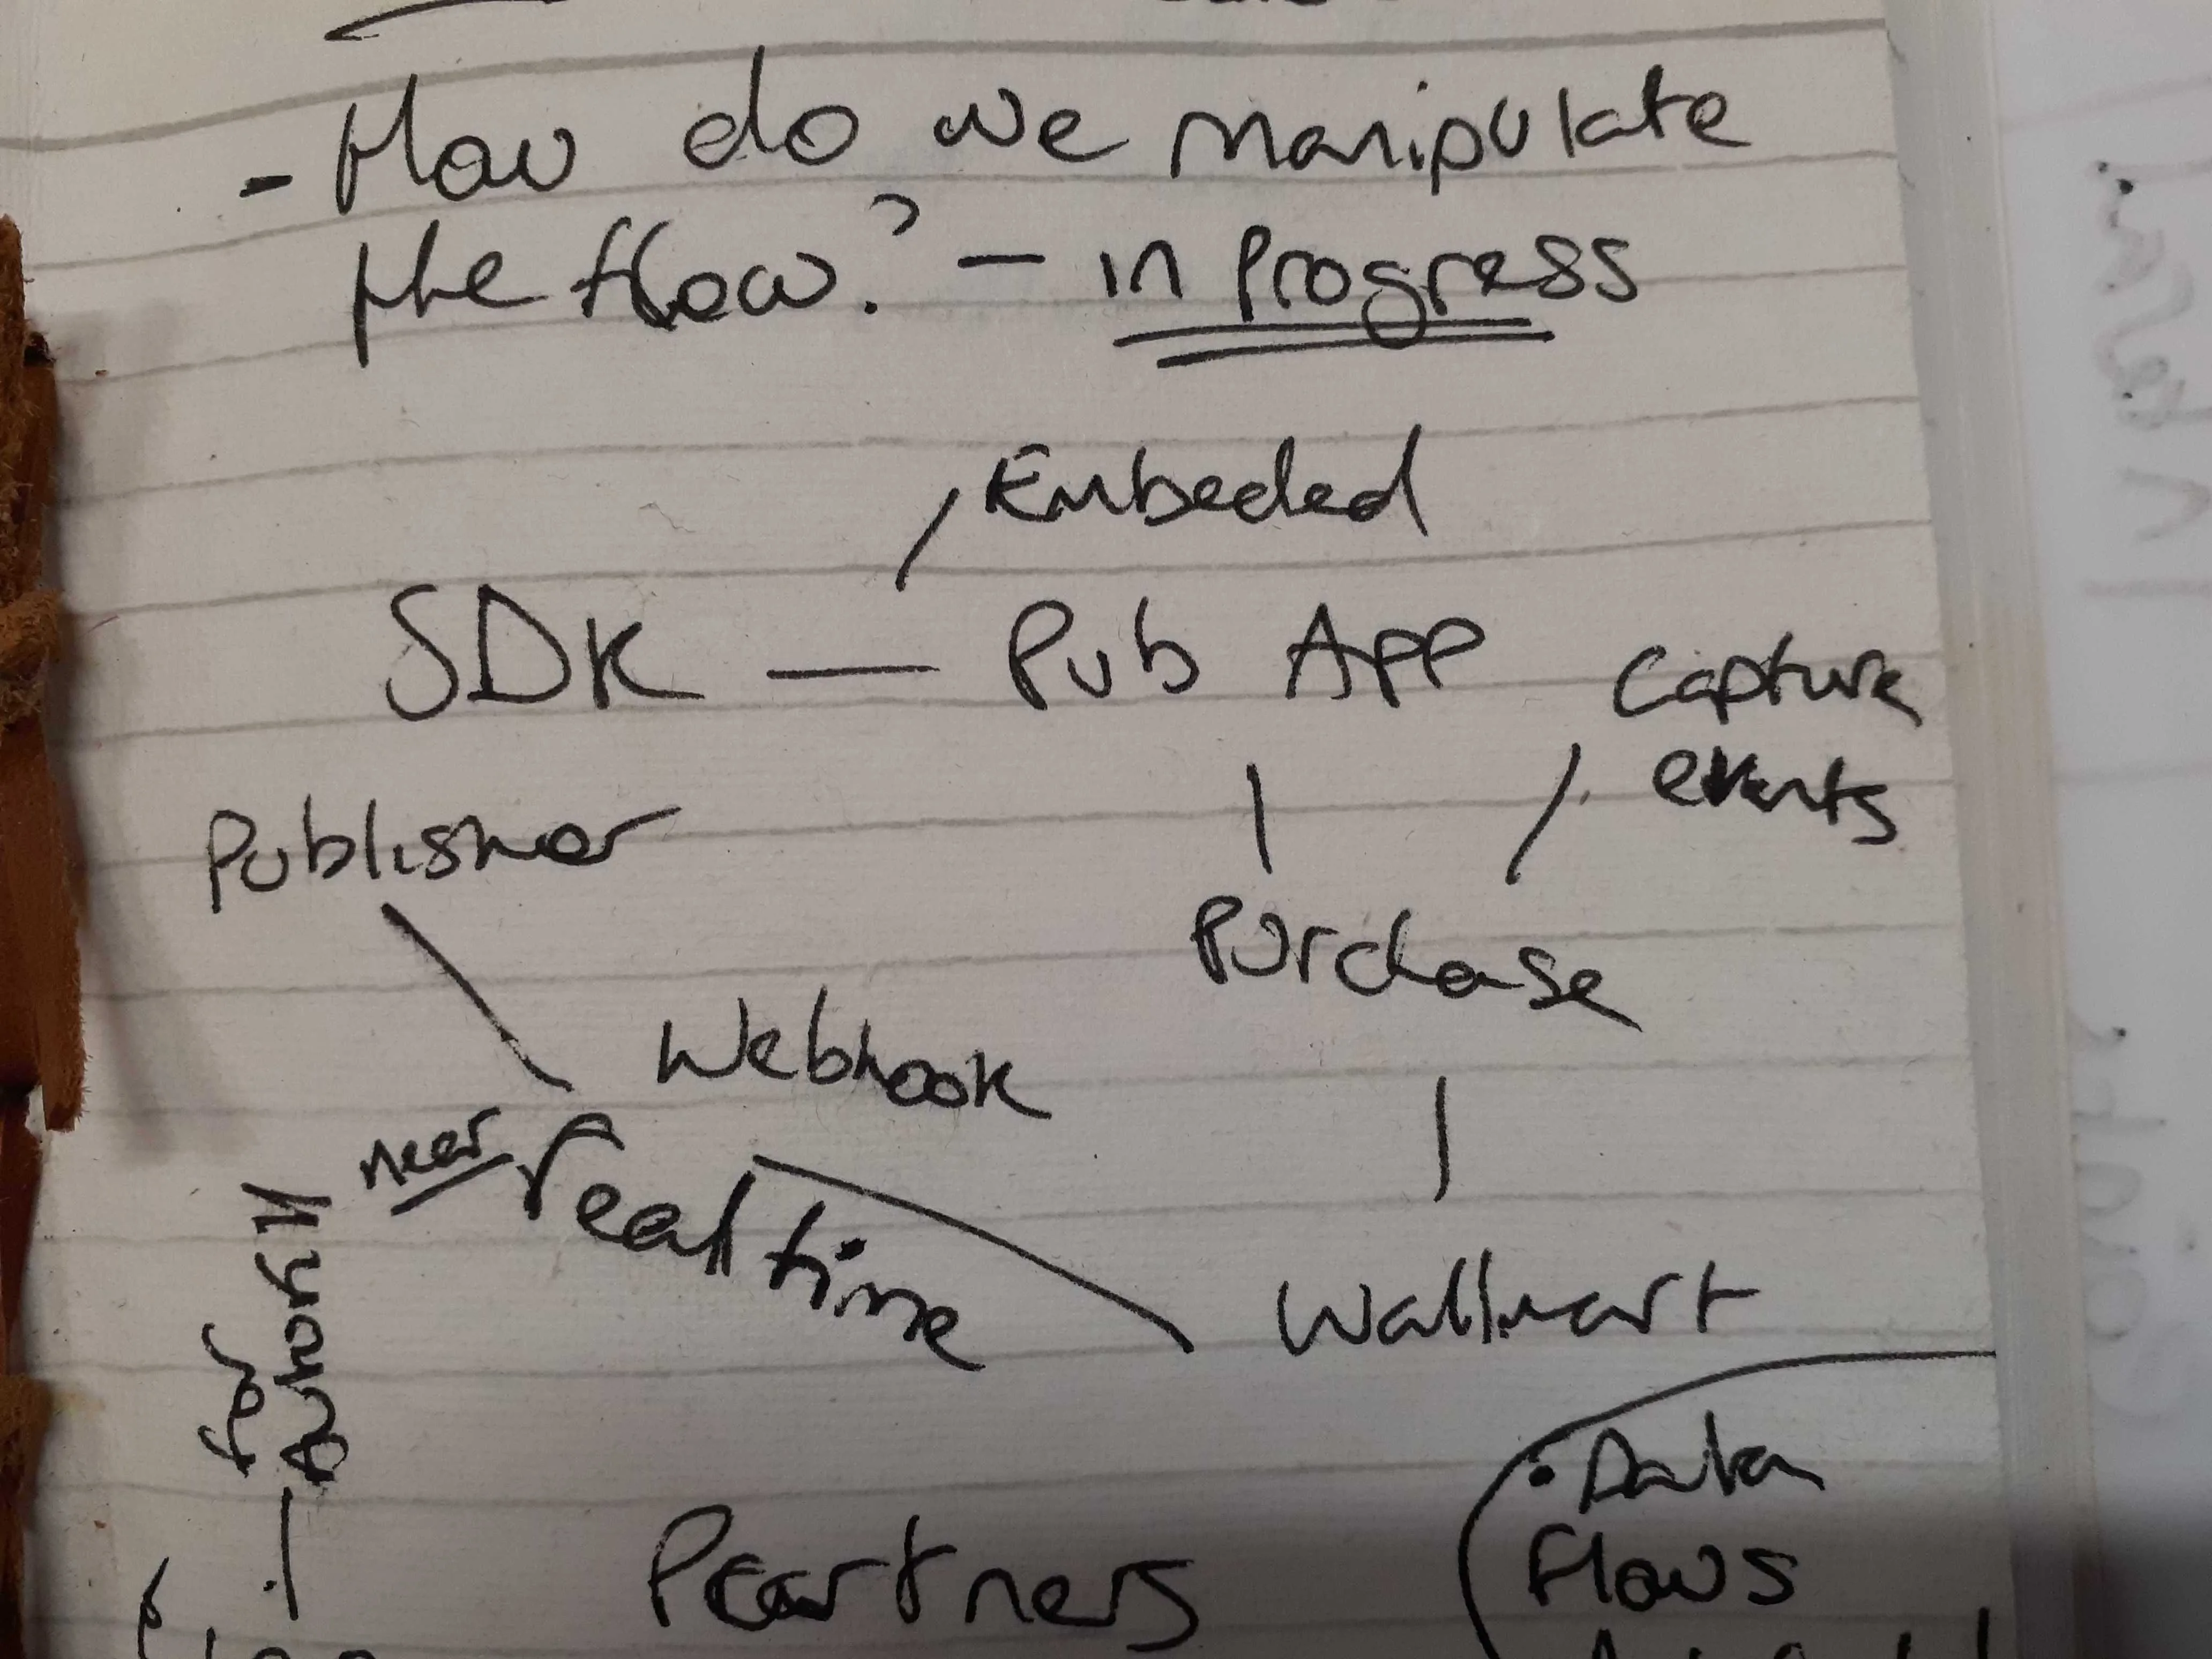 - How do we manipulate
the flow? - in Progress
Embeded
SDK — Pub App
Capture
events
Publisher
Purchase
Webhook
near real time
Wallmart
for
Partners
• Data
flows